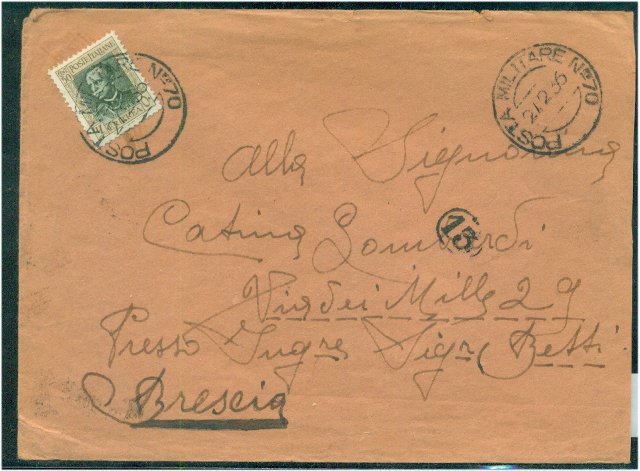 POSTE ITALIANE
POSTA MILITARE No 70
POSTA MILITARE No 70
27.2.36
Alla Signorina
Catina Lombardi
13
Via dei Mille 29
Presso Sigr Betti
Brescia